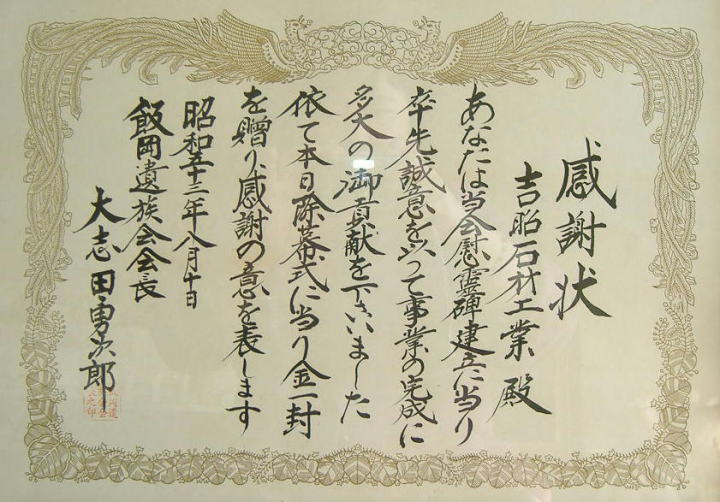 感謝状
吉昭石材工業 殿
あなたは当会慰霊碑建立に当り
卒先誠意を以つて事業の完成に
多大の御貢献を下さいました
依て本日除幕式に当り金一封
を贈り感謝の意を表します
昭和五十三年八月十日
飯岡遺族会会長
大志田勇次郎